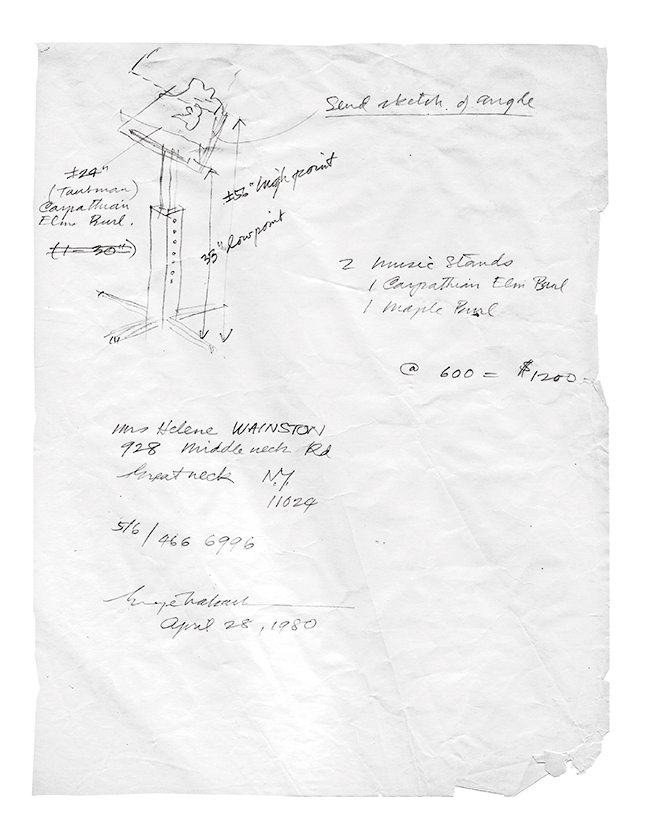 Send sketch of angle
±24"
(Taubman)
Carpathian
Elm Burl.
(1 = 30")
±56" high point
35" low point
2 Music Stands
1 Carpathian Elm Burl
1 Maple Burl
@ 600 = $1200
Mrs Helene WAINSTON
928 Middle neck Rd
Great neck NY
11024
516/466 6996
April 28, 1980